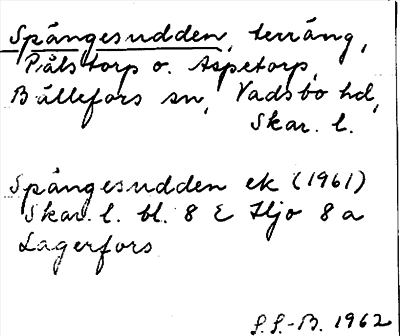 Spångesudden, terräng,
Pålstorp o. Aspetorp,
Bällefors sn, Vadsbo hd,
Skar. l.
Spångesudden ek (1961)
Skar. l. bl. 8 E Hjo 8 a
Lagerfors
S.S.-B. 1962